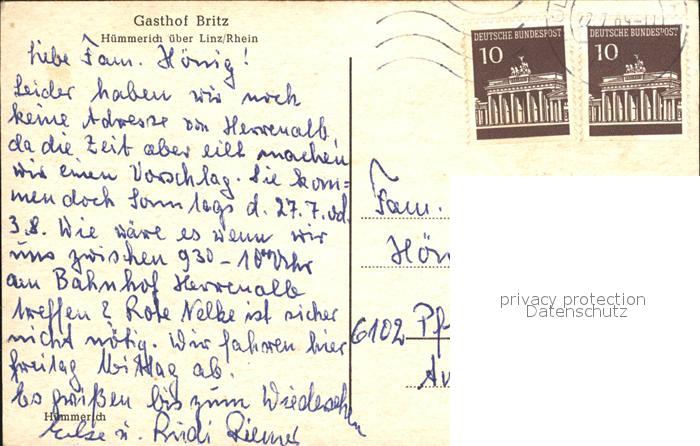 Gasthof Britz
Hümmerich über Linz/Rhein
Liebe Fam. Hönig!
Leider haben wir noch
keine Adresse von Herrenalb,
da die Zeit aber eilt machen
wir einen Vorschlag. Sie kom=
men doch Sonntags d. 27.7. od.
3.8. Wie wäre es wenn wir
uns zwischen 930 - 10⁰⁰ Uhr
am Bahnhof Herrenalb
treffen? Rote Nelke ist sicher
nicht nötig. Wir fahren hier
freitag Mittag ab.
Es grüßen bis zum Wiedersehen
Hümmerich
u. Rudi
DEUTSCHE BUNDESPOST
10
DEUTSCHE BUNDESPOST
10
Fam.
Hön
6102 Pf
privacy protection
Datenschutz